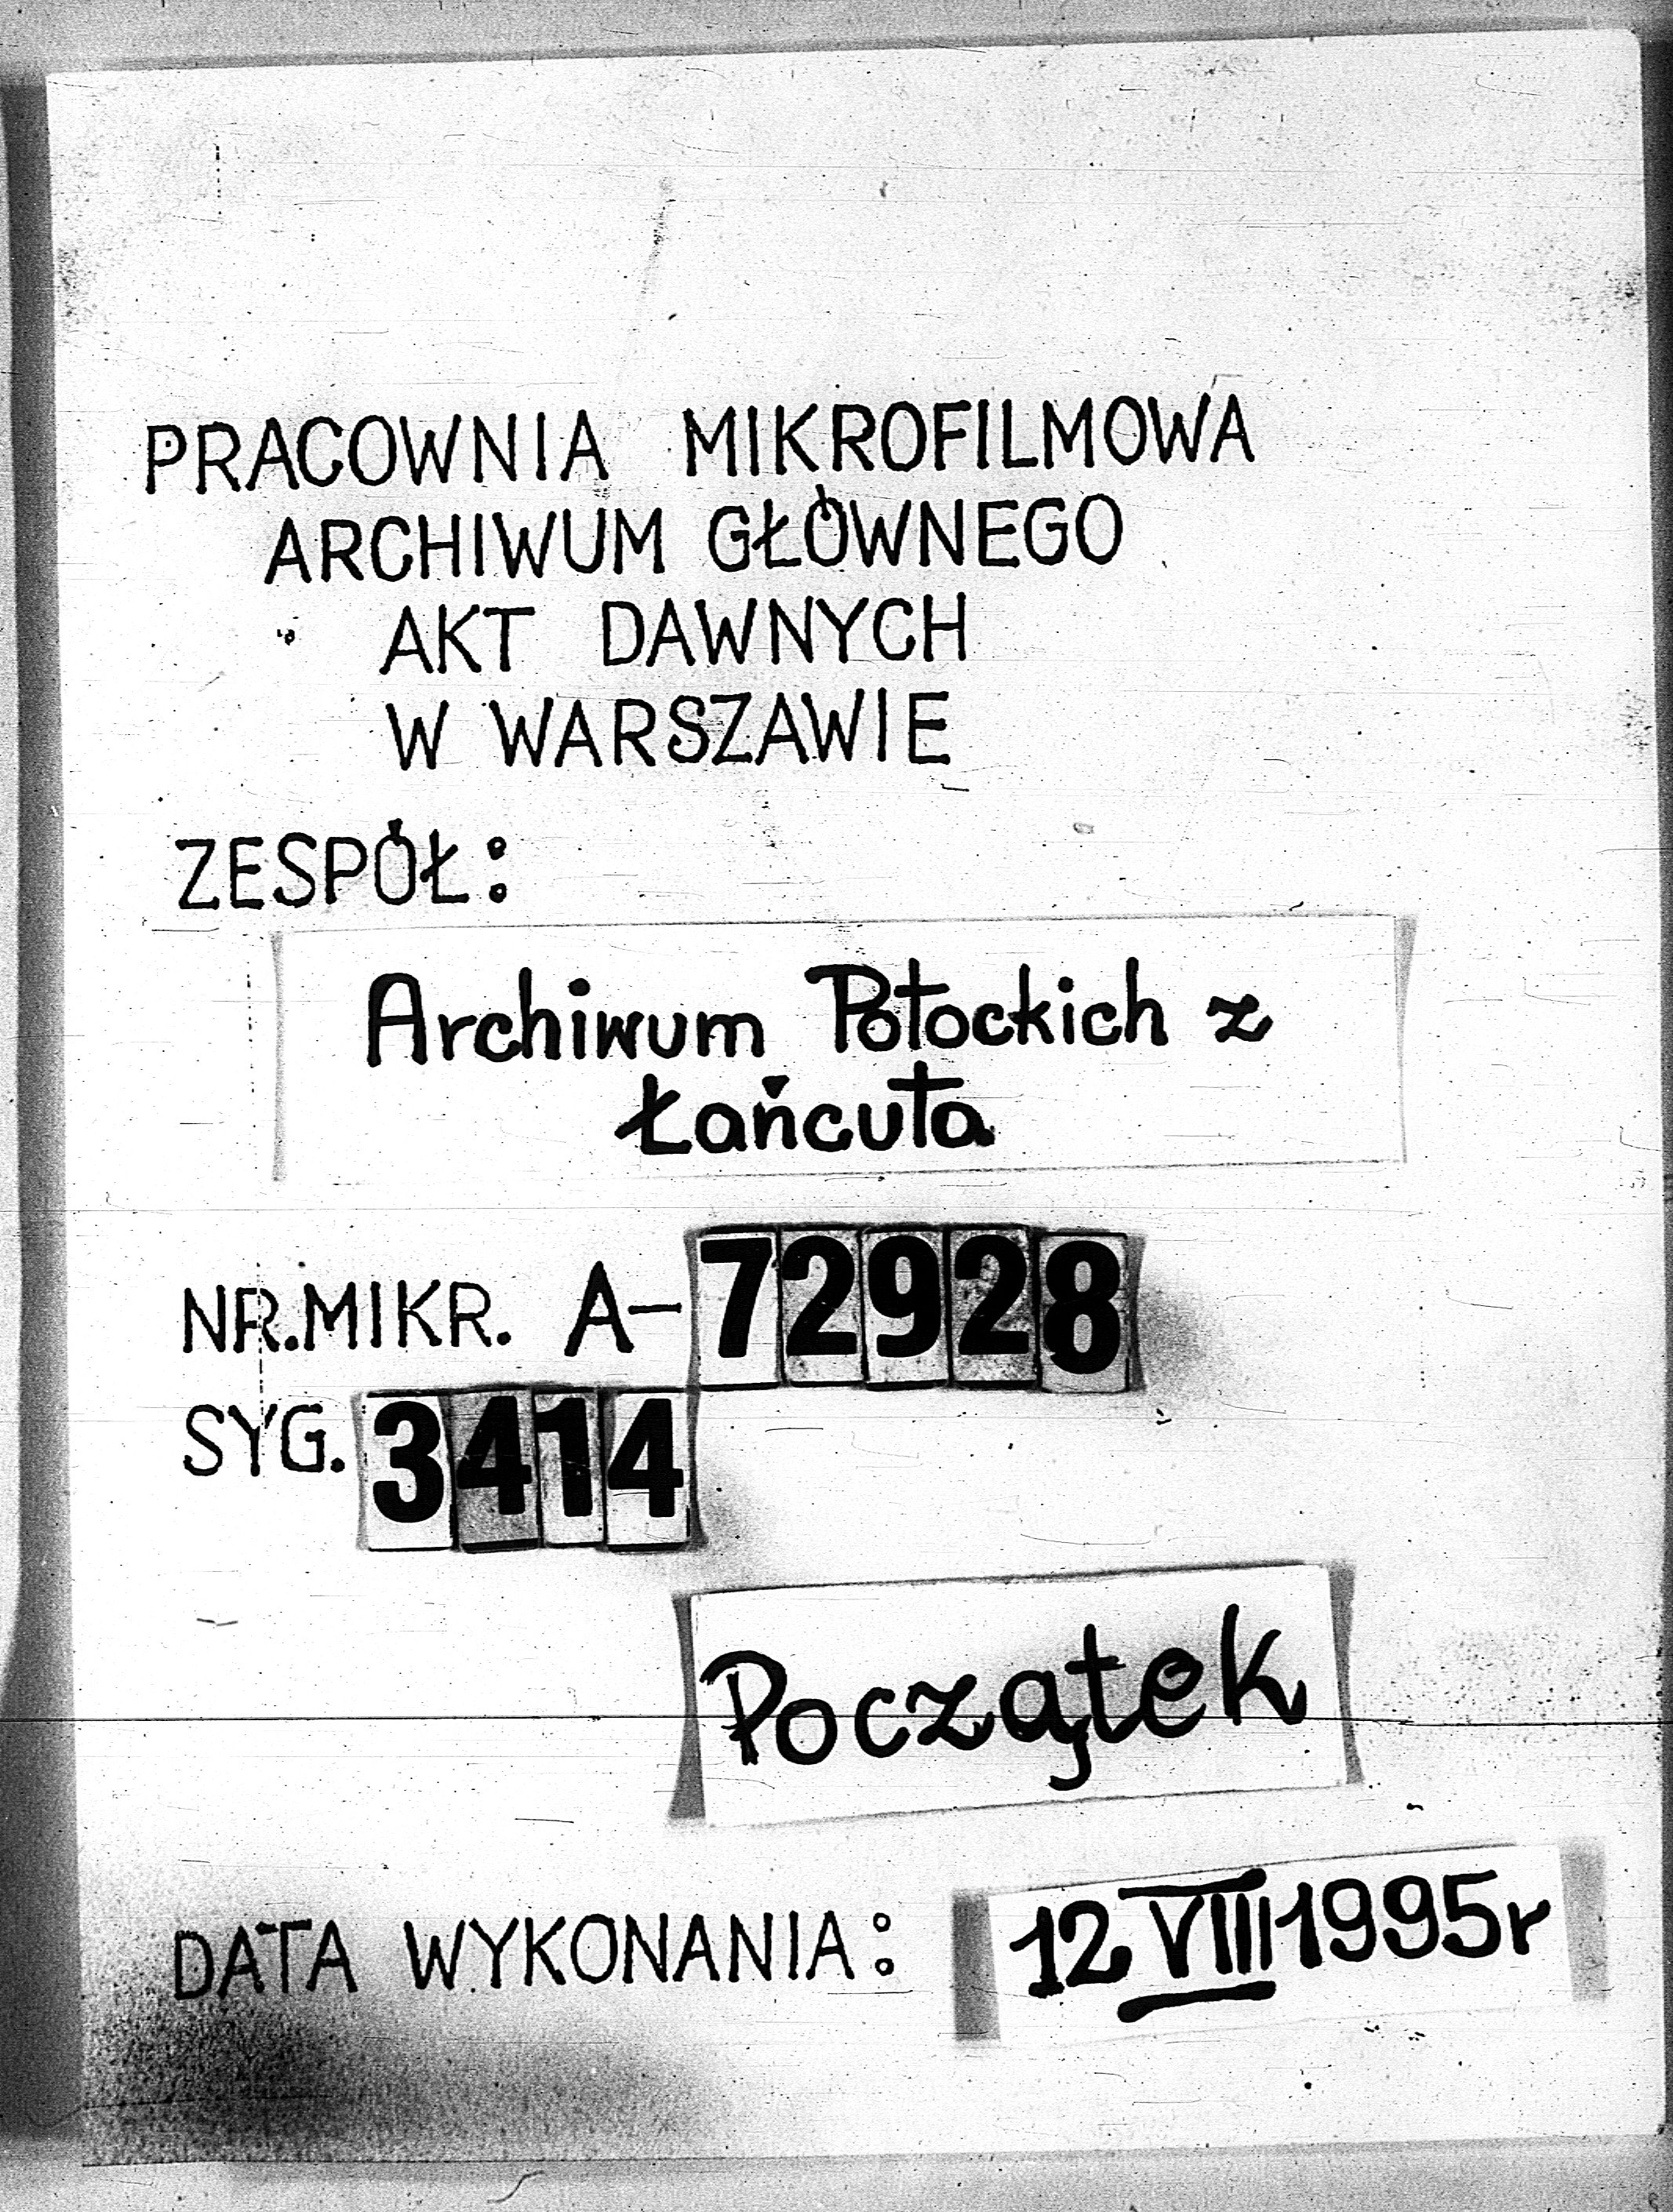 PRACOWNIA MIKROFILMOWA
ARCHIWUM GŁÓWNEGO
AKT DAWNYCH
W WARSZAWIE
ZESPÓŁ:
Archiwum Potockich z
Łańcuta
NR. MIKR. A-72928
SYG. 3414
Początek
DATA WYKONANIA: 12 VIII 1995r